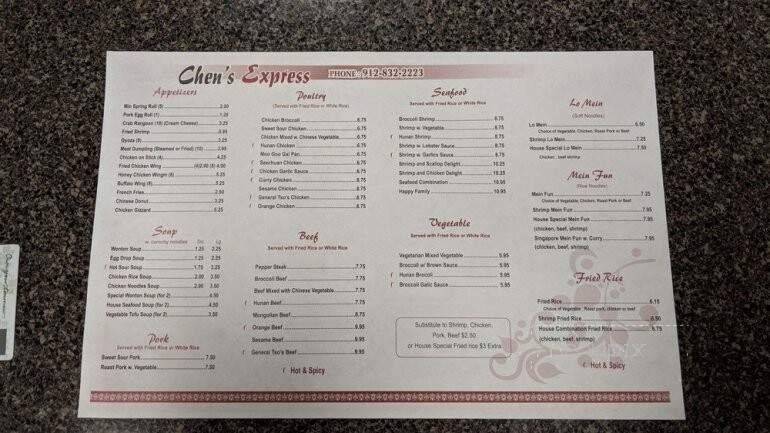 Chen's Express PHONE: 912-832-2223
Appetizers
Min Spring Roll (5) 2.00
Pork Egg Roll (1) 1.25
Crab Rangoon (10) (Cream Cheese) 3.25
Fried Shrimp
Gyoza (8) 3.25
Meat Dumpling (Steamed or Fried) (10)
Chicken on Stick (4) 4.25
Fried Chicken Wing
Honey Chicken Wingin (8) 5.25
Buffalo Wing (8) 5.25
French Fries 2.50
Chinese Donut 3.25
Chicken Gizzard 6.25
Soup
w. crunchy noodles Sm. Lg
Wonton Soup 1.25 2.25
Egg Drop Soup 1.25 2.25
Hot Sour Soup 1.75 3.25
Chicken Rice Soup 2.00 3.50
Chicken Noodles Soup 2.00 3.50
Special Wonton Soup (for 2) 4.50
House Seafood Soup (for 2) 4.50
Vegetable Tofu Soup (for 2) 3.50
Pork
Served with Fried Rice or White Rice
Sweet Sour Pork 7.50
Roast Pork w. Vegetable 7.50
Poultry
(Served with Fried Rice or White Rice)
Chicken Broccoli 6.75
Sweet Sour Chicken 6.75
Chicken Mixed w. Chinese Vegetable 6.75
Hunan Chicken 6.75
Moo Goo Gai Pan 6.75
Szechuan Chicken 6.75
Chicken Garlic Sauce 6.75
Curry Chicken 6.75
Sesame Chicken 6.75
General Tso's Chicken 6.75
Orange Chicken 6.75
Beef
Served with Fried Rice or White Rice
Pepper Steak 7.75
Broccoli Beef 7.75
Beef Mixed with Chinese Vegetable 7.75
Hunan Beef 7.75
Mongolian Beef 8.75
Orange Beef 9.95
Sesame Beef 9.95
General Tso's Beef 9.95
Hot & Spicy
Seafood
Served with Fried Rice or White Rice
Broccoli Shrimp 8.75
Shrimp w. Vegetable 8.75
Hunan Shrimp 8.75
Shrimp w. Lobster Sauce 8.75
Shrimp w. Garlics Sauce 8.75
Shrimp and Scallop Delight 10.25
Shrimp and Chicken Delight 10.25
Seafood Combination 10.95
Happy Family 10.95
Vegetable
Served with Fried Rice or White Rice
Vegetarian Mixed Vegetable 5.95
Broccoli w/ Brown Sauce 5.95
Hunan Brocoli 5.95
Broccoli Galic Sauce 5.95
Substitute to Shrimp, Chicken,
Pork, Beef $2.50
or House Special Fried rice $3 Extra
Lo Mein
(Soft Noodles)
Lo Mein 6.50
Choice of Vegetable, Chicken, Roast Pork or Beef
Shrimp Lo Mein 7.25
House Special Lo Mein 7.50
Chicken, beef shrimp
Mein Fun
(Rice Noodles)
Mein Fun 7.25
Choice of Vegetable, Chicken, Roast Pork or Beef
Shrimp Mein Fun 7.95
House Special Mein Fun 7.95
(chicken, beef, shrimp)
Singapore Mein Fun w. Curry 7.95
(chicken, beef, shrimp)
Fried Rice
Fried Rice 6.15
Choice of Vegetable, Roast pork, chicken or beef
Shrimp Fried Rice 6.50
House Combination Fried Rice 6.75
(chicken, beef, shrimp)
Hot & Spicy